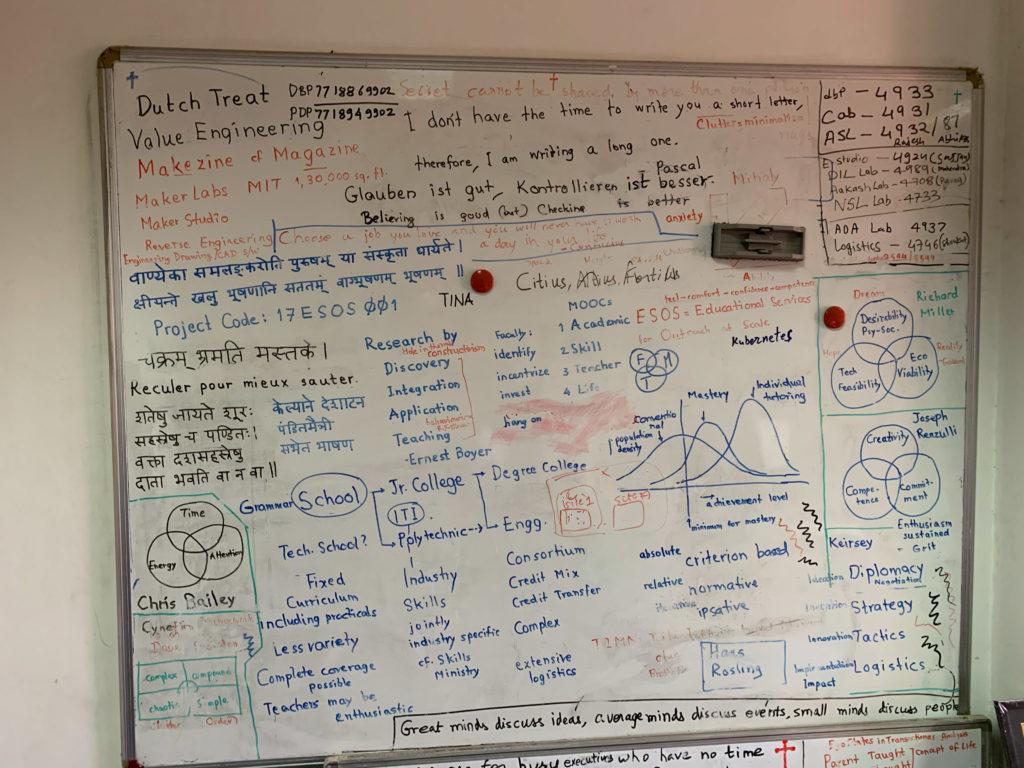 Dutch Treat
DBP 7718869902
PDP 7718949902
Secret cannot be shared, by more than one person
Value Engineering
I don't have the time to write you a short letter,
therefore, I am writing a long one.
Pascal
Clutter minimalism
Makezine cf Magazine
Maker Labs MIT 1,30,000 sq. ft.
Glauben ist gut, Kontrollieren ist besser.
Believing is good (but) Checking is better
Maker Studio
Reverse Engineering
Engineering Drawing/CAD s/w
Choose a job you love and you will never have to work
a day in your life
- Confucius
anxiety
Ability
dbp - 4933
Cab - 4931
ASL - 4932/81
DIL Lab - 4989
Aakash Lab - 4708
NSL Lab - 4733
ADA Lab 4937
Logistics - 4746
वाण्येका समलङ्करोति पुरुषम् या संस्कृता धार्यते।
क्षीयन्ते खलु भूषणानि सततम् वाग्भूषणम् भूषणम् ॥
TINA
Citius, Altius, Fortius
Project Code: 17ESOS001
feel-comfort-confidence-competence
ESOS = Educational Services
for Outreach at Scale
Kubernetes
चक्रम् भ्रमति मस्तके।
Reculer pour mieux sauter.
शतेषु जायते शूरः
सहस्रेषु च पण्डितः।
वक्ता दशसहस्रेषु
दाता भवति वा न वा॥
केल्याने देशाटन
पंडितमैत्री
सभेत भाषण
Research by
Discovery
Integration
Application
Teaching
-Ernest Boyer
constructivism
Faculty:
identify
incentivize
invest
hang on
MOOCs
1 Academic
2. Skill
3 Teacher
4 Life
F
M
T
conventional
population density
Mastery
Individual tutoring
achievement level
minimum for mastery
Dream
Richard Millet
Desirability
Psy-Soc.
Tech Feasibility
Eco Viability
Joseph Renzulli
Creativity
Compe-
tence
Commit-
ment
Enthusiasm
sustained
- Grit
Grammar School
Jr. College
ITI
Polytechnic
Degree College
Engg.
site 1
Tech. School?
Fixed
Curriculum
including practicals
Less variety
Complete coverage
possible
Teachers may be
enthusiastic
Industry
Skills
jointly
industry specific
cf. Skills
Ministry
Consortium
Credit Mix
Credit Transfer
Complex
extensive
logistics
absolute
criterion based
relative
normative
ipsative
Hans
Rosling
Keirsey
Ideation Diplomacy
Negotiation
Invention Strategy
Innovation Tactics
Implementation Logistics
Impact
Time
Energy
Attention
Chris Bailey
Cynefin
Dave Snowden
complex
compound
chaotic
Simple
Great minds discuss ideas, average minds discuss events, small minds discuss people
for busy executives who have no time
Parent Taught
concept of Life